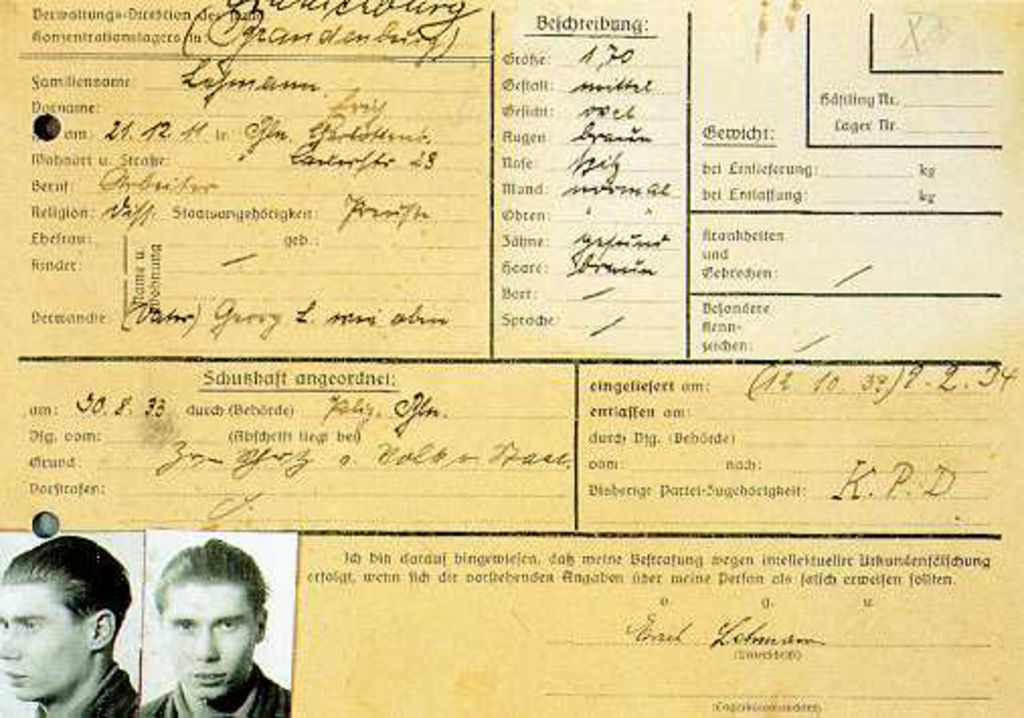 Verwaltungs-Direktion des staatl.
Konzentrationslagers in: (Brandenburg)
Familienname: Lehmann
Vorname: Erich
am: 21.12.11 in Bln. Charlottenb.
Wohnort u. Straße: 23
Beruf: Arbeiter
Religion: Diss. Staatsangehörigkeit: Preuße
Ehefrau: geb.:
Kinder: —
Name u.
Wohnung
Verwandte: (Vater) Georg L. wie oben
Beschreibung:
Größe: 1,70
Gestalt: mittel
Gesicht: oval
Augen: braun
Nase: spitz
Mund: normal
Ohren: " "
Zähne: gesund
Haare: braun
Bart: —
Sprache: /
Häftling Nr.
Lager Nr.
Gewicht:
bei Einlieferung: kg
bei Entlassung: kg
Krankheiten
und
Gebrechen: /
Besondere
Kenn-
zeichen: /
Schutzhaft angeordnet:
am: 30.8.33 durch (Behörde) Poliz. Bln.
Vfg. vom: (Abschrift liegt bei)
Grund: Zum Schutz v. Volk u Staat.
Vorstrafen:
eingeliefert am: (12 10. 33) 9.2.34
entlassen am:
durch Vfg. (Behörde)
vom: nach:
Bisherige Partei-Zugehörigkeit: K.P.D
Ich bin darauf hingewiesen, daß meine Bestrafung wegen intellektueller Urkundenfälschung
erfolgt, wenn sich die vorstehenden Angaben über meine Person als falsch erweisen sollten.
v. g. u.
Erich Lehmann
(Unterschrift)
(Lagerkommandeur)